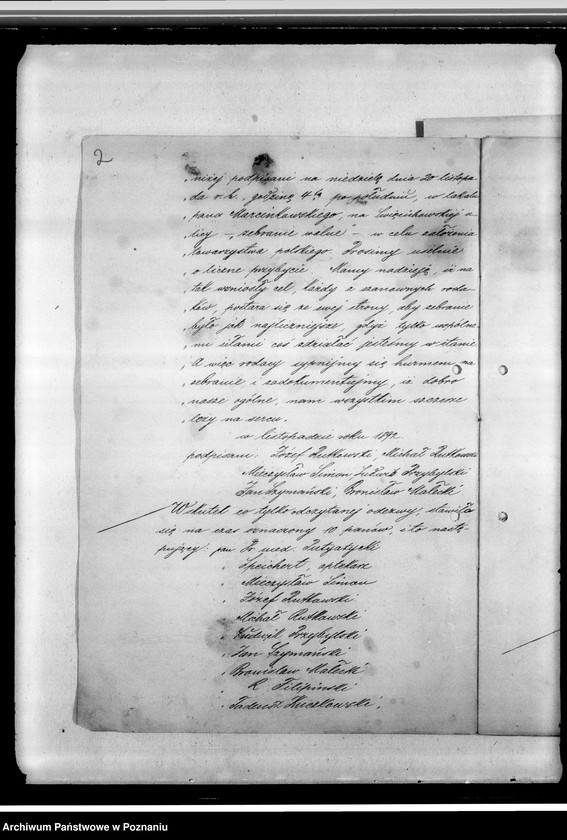 2
niżej podpisani na niedzielę dnia 20 listopa
da r.b. godzinę 4tą po południu, w lokalu
pana Marcinkowskiego, na Święciechowskiej u
licy - "zebranie walne" - w celu założenia
towarzystwa polskiego. Prosimy usilnie
o liczne przybycie. Mamy nadzieję, iż na
tak wzniosły cel, każdy z szanownych roda
ków, postara się ze swej strony, aby zebranie
było jak najliczniejsze, gdyż tylko wspólne
mi siłami coś zdziałać jesteśmy w stanie
A więc rodacy sypnijmy się hurmem na
zebranie i zadokumentujmy, iż dobro
nasze ogólne, nam wszystkim szczerze
leży na sercu.
w listopadzie roku 1892
podpisani: Józef Rutkowski, Michał Rutkowski
Mieczysław Simon Ludwik Przybylski
Jan Szymański, Bronisław Małecki
Wskutek co tylko odczytanej odezwy, stawiło
się na czas oznaczony 10 panów, i to nastę-
pujący: pan Dr med
Speichert, aptekarz
Mieczysław Simon
Józef Rutkowski
Michał Rutkowski
Ludwik Przybylski
Jan Szymański
Bronisław Małecki
R Filipiński
Tadeusz
Archiwum Państwowe w Poznaniu